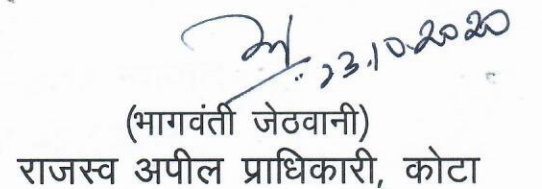 23.10.2020
(भागवंती जेठवानी)
राजस्व अपील प्राधिकारी, कोटा